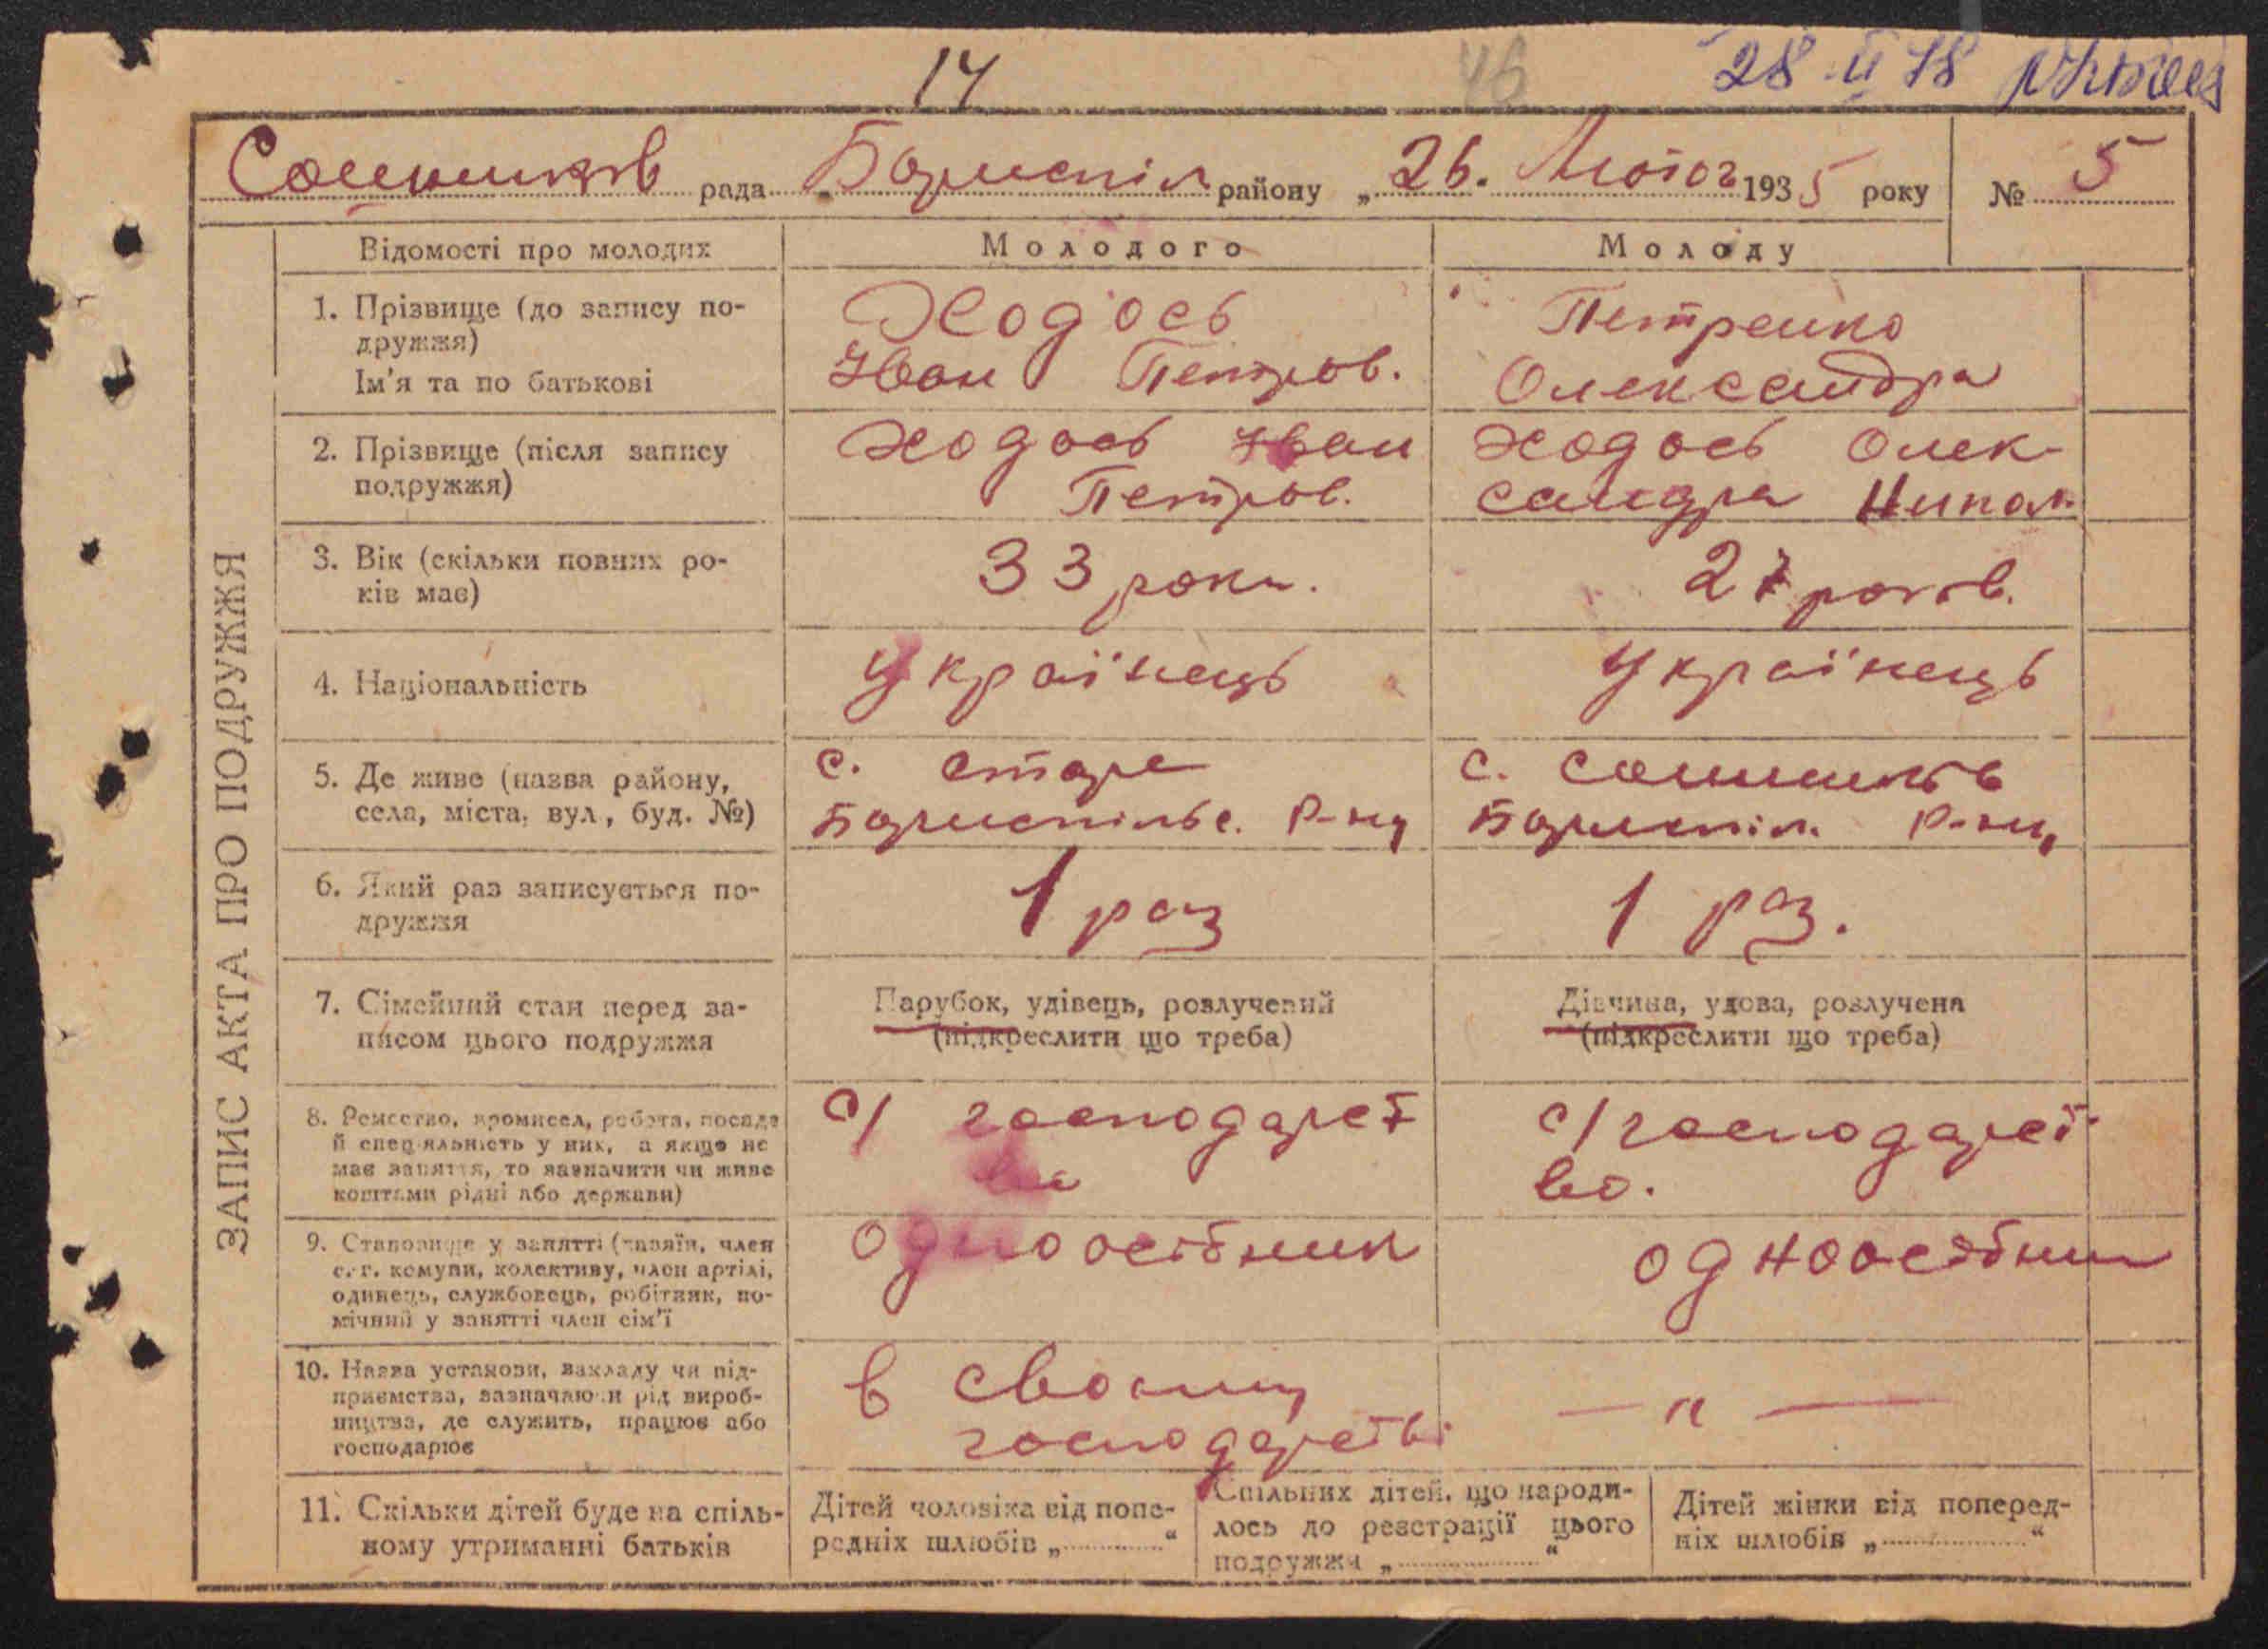 14 46 28 II 78
Сошників рада Бориспіл району „ 26. Лютог 1935 року № 5
ЗАПИС АКТА ПРО ПОДРУЖЖЯ
Відомості про молодих Молодого Молоду
1. Прізвище (до запису по-
дружжя)
Ім'я та по батькові
Ходось
Іван Петров.
Петренко
Олександра
2. Прізвище (після запису
подружжя)
Ходось Іван
Петров.
Ходось Олек-
сандра Никол.
3. Вік (скільки повних ро-
ків має)
33 роки.
27 років.
4. Національність
Українець
Українець
5. Де живе (назва району,
села, міста, вул, буд. №)
с. Старе
Бориспільс. р-ну
с. Сошників
Бориспіл. р-ну
6. Який раз записується по-
дружжя
1 раз
1 раз.
7. Сімейний стан перед за-
писом цього подружжя
Парубок, удівець, розлучений
(підкреслити що треба)
Дівчина, удова, розлучена
(підкреслити що треба)
8. Ремество, промисел, робота, посада
й спеціяльність у них, а якщо не
має заняття, то зазначити чи живе
коштами рідні або держави)
с/ господарст
во
с/господарст
во.
9. Становище у занятті (хазяїн, член
с.-г. комуни, колективу, член артілі,
одинець, службовець, робітник, по-
мічний у занятті член сім'ї
одноосібник
одноосібник
10. Назва установи, закладу чи під-
приємства, зазначаючи рід вироб-
ництва, де служить, працює або
господарює
в своєму
господарстві
— „ —
11. Скільки дітей буде на спіль-
ному утриманні батьків
Дітей чоловіка від попе-
редніх шлюбів „ “
Спільних дітей, що народи-
лось до реєстрації цього
подружжя „ “
Дітей жінки від поперед-
ніх шлюбів „ “